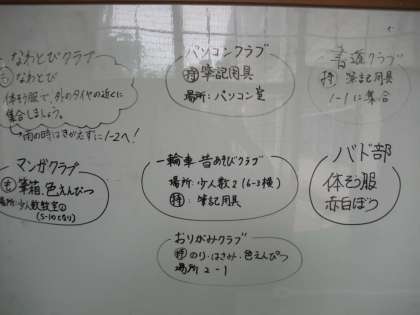 なわとびクラブ
持 なわとび
体そう服で、外のタイヤの近くに
集合しましょう。
*雨の時はきがえずに1-2へ!
パソコンクラブ
持 筆記用具
場所:パソコン室
書道クラブ
持 筆記用具
1-1に集合
マンガクラブ
持 筆箱、色えんぴつ
場所:少人数教室②
(5-1のとなり)
一輪車・昔あそびクラブ
場所:少人数2(6-3横)
持:筆記用具
バド部
体そう服
赤白ぼう
おりがみクラブ
持 のり・はさみ・色えんぴつ
場所 2-1